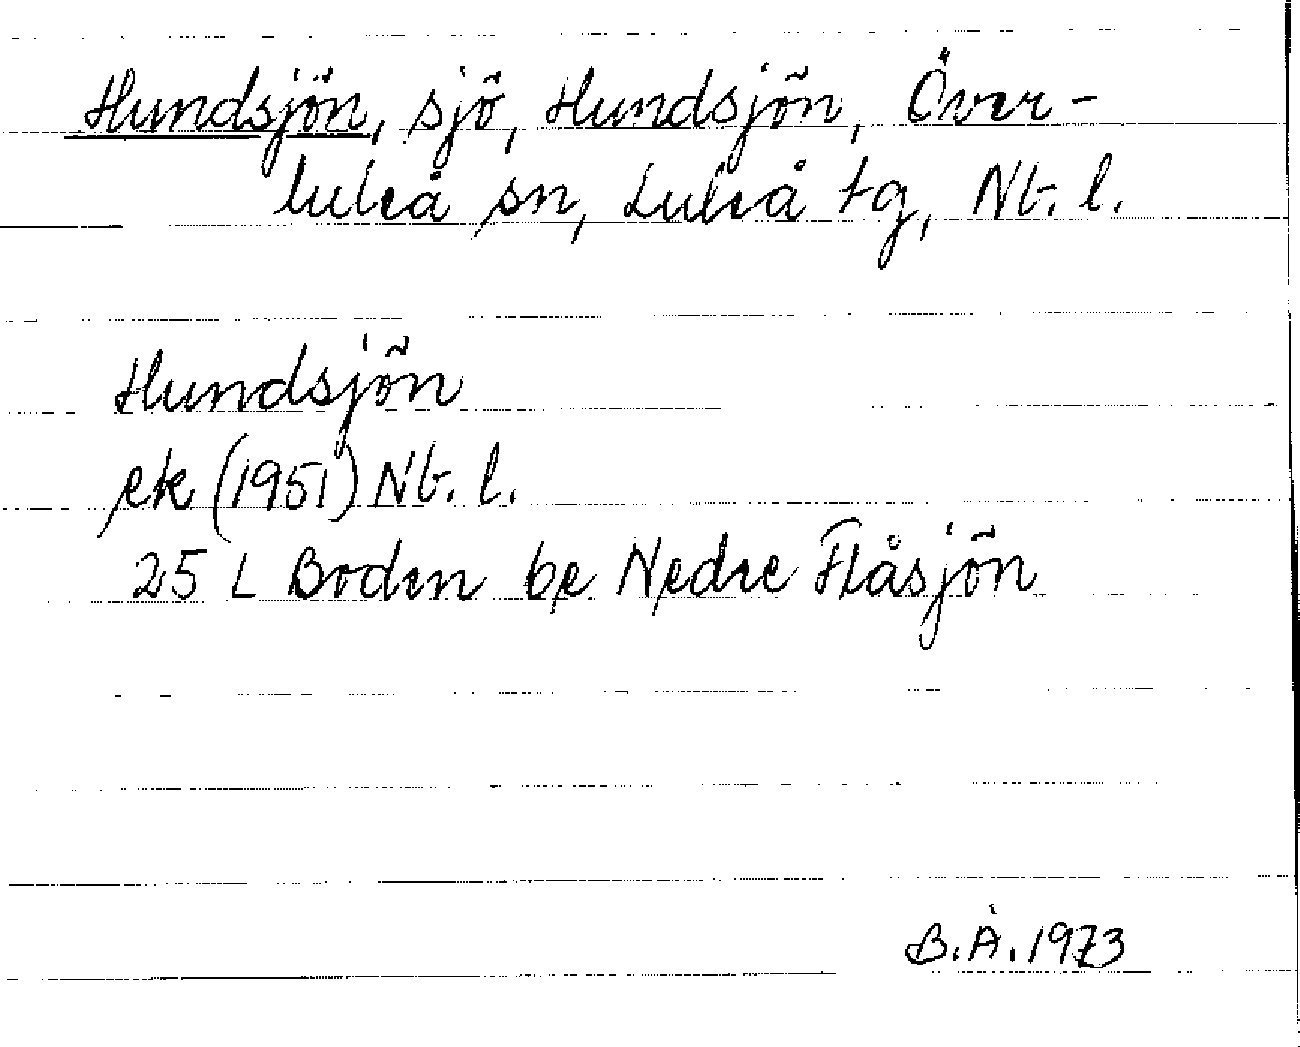 Hundsjön, sjö, Hundsjön, Över-
luleå sn, Luleå tg, Nb. l.
Hundsjön
ek (1951) Nb. l.
25 L Boden be Nedre Flåsjön
B.Å. 1973